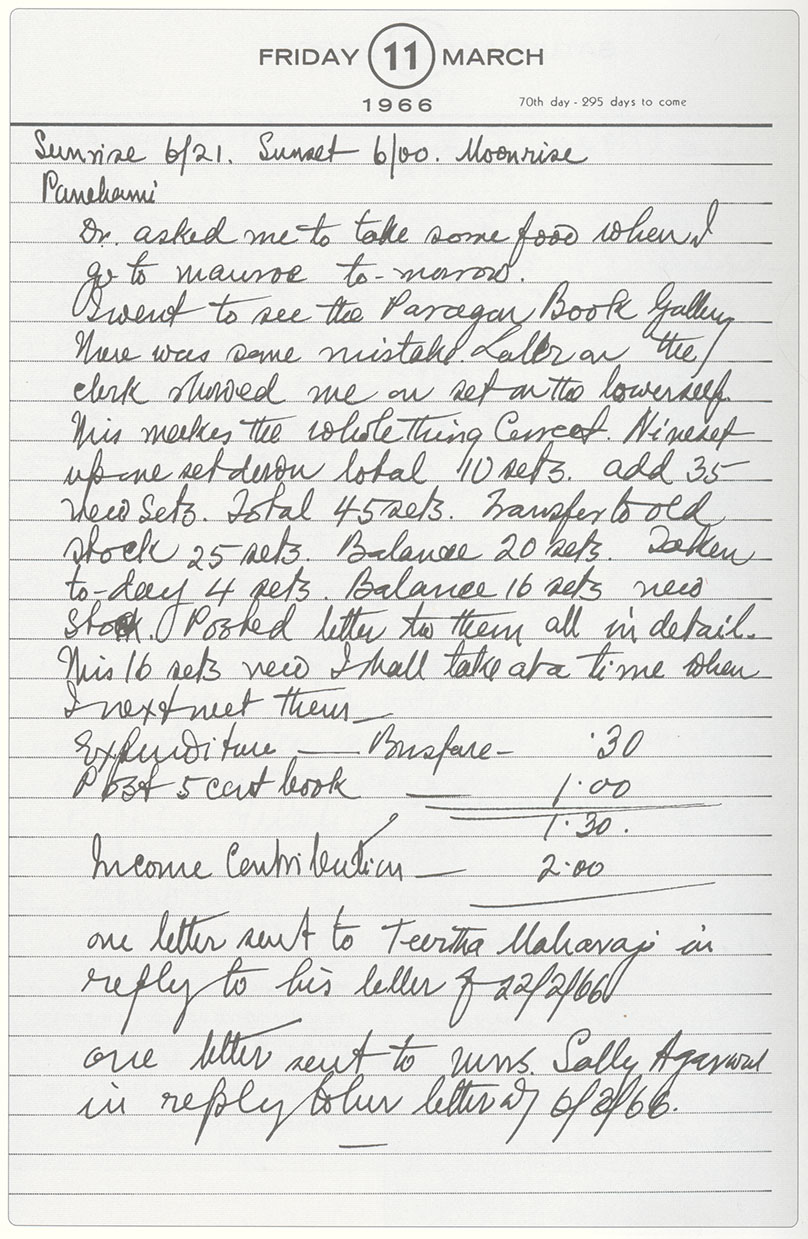 FRIDAY 11 MARCH
1966
70th day - 295 days to come
Sunrise 6/21. Sunset 6/00. Moonrise
Panchami
Dr. asked me to take some food when I
go to to-morrow.
I went to see the Paragon Book Gallery
There was some mistake. Latter on the
clerk showed me on set on the lowerself.
This makes the whole thing Correct. Nine set
up one set down total 10 sets. add 35
new sets. Total 45 sets. Transfer to old
stock 25 sets. Balance 20 sets. Taken
to-day 4 sets. Balance 16 sets new
stock. Posted letter to them all in detail.
This 16 sets new I shall take at a time when
I next meet them —
Expenditure — Busfare — .30
Post 5 cent book — 1.00
1.30.
Income Contribution — 2.00
one letter sent to Teertha Maharaj in
reply to his letter of 22/2/66
one letter sent to Mrs. Sally Agarwal
in reply to her letter of 6/3/66.